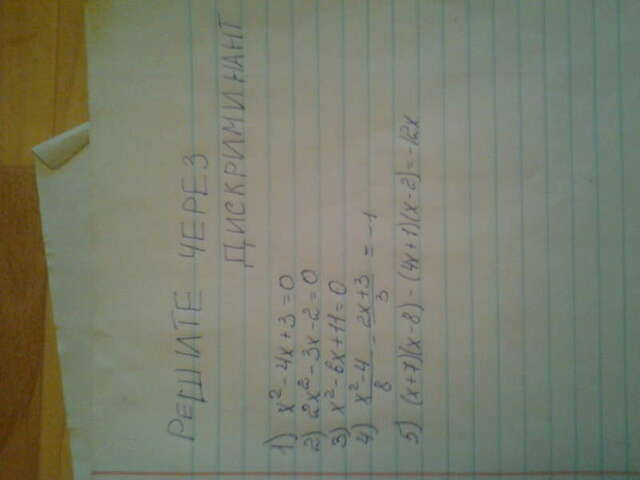 РЕШИТЕ ЧЕРЕЗ
ДИСКРИМИНАНТ
1) x² - 4x + 3 = 0
2) 2x² - 3x - 2 = 0
3) x² - 6x + 11 = 0
4) x² - 4 / 8 - 2x + 3 / 3 = -1
5) (x + 7)(x - 8) - (4x + 1)(x - 2) = -12x